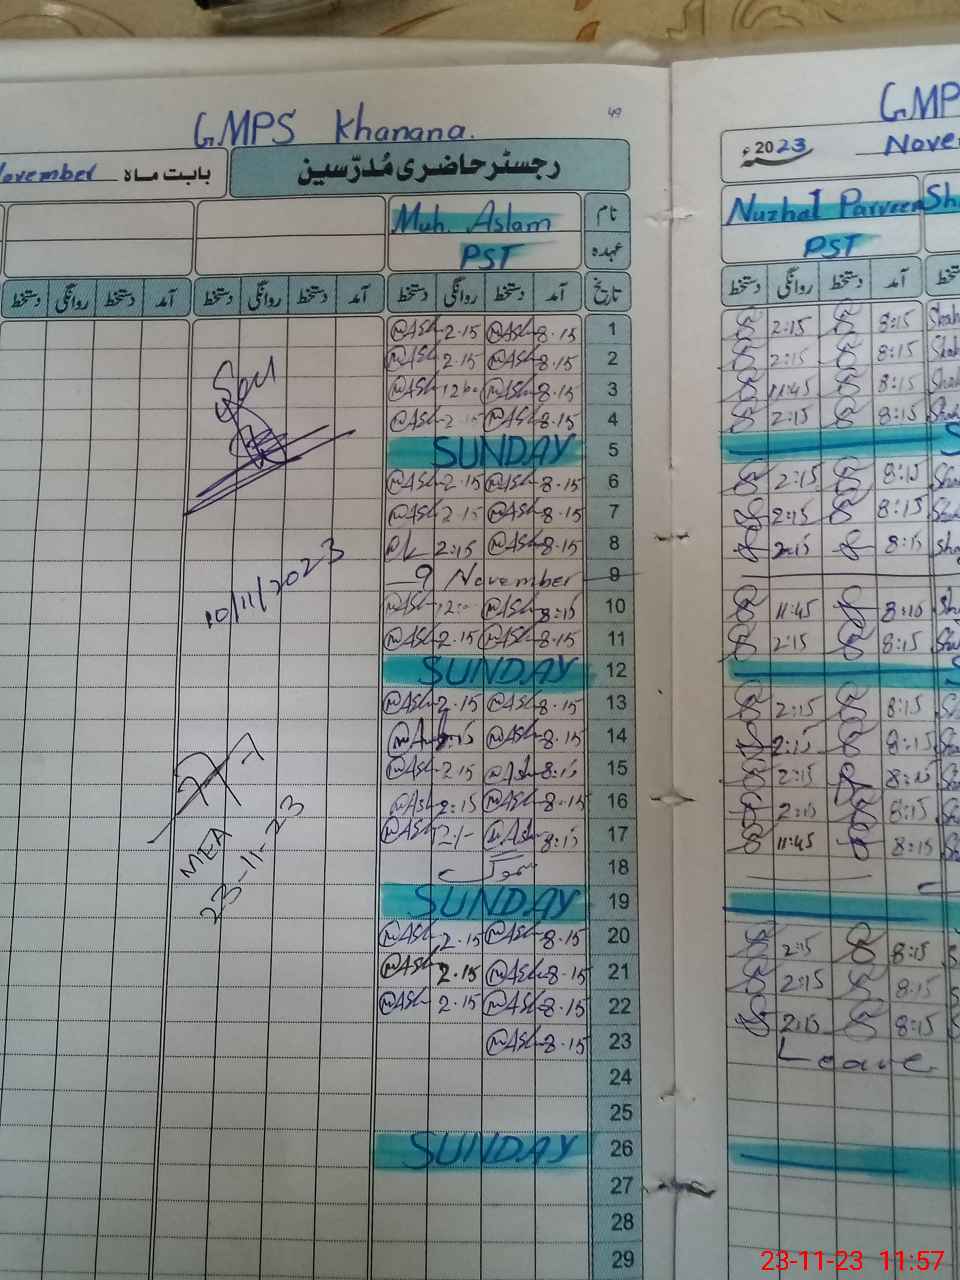 GMPS Khanana.
49
رجسٹر حاضری مُدرّسین
بابت ماہ November
نام Muh. Aslam
عہدہ PST
تاریخ آمد دستخط روانگی دستخط آمد دستخط روانگی دستخط آمد دستخط روانگی دستخط
1 8.15 2.15
2 8.15 2.15
3 8.15
4 8.15
5 SUNDAY
6 8.15 2.15
7 8.15 2.15
8 8.15 2:15
9 9 November
10 8:15
11 8.15 2.15
12 SUNDAY
13 8.15 2.15
14 8.15
15 8:15 2.15
16 8.15 2:15
17 8:15
18
19 SUNDAY
20 8.15 2.15
21 8.15 2.15
22 8.15 2.15
23 8.15
24
25
26 SUNDAY
27
28
29
10/11/2023
MEA
23-11-23
GMP
2023ء
Nove
Nuzhat Parveen Sh
PST
آمد دستخط روانگی دستخط
8:15 2:15
8:15 2:15
8:15 11:45
8:15 2:15
8:15 2:15
8:15 2:15
8:15 2:15
8:15 11:45
8:15 2:15
8:15 2:15
8:15 2:15
8:15 2:15
8:15 2:15
8:15 11:45
8:15 2:15
8:15 2:15
8:15 2:15
Leave
23-11-23 11:57